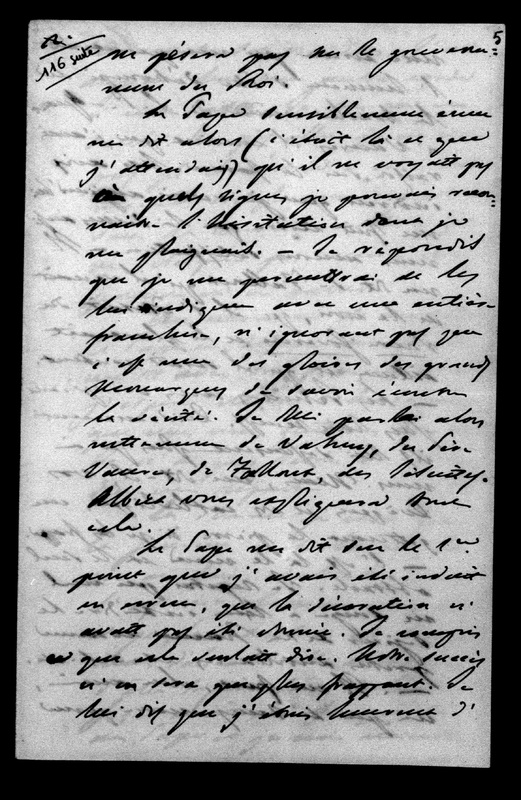 5
116 suite
ne pèsera pas sur le gouverne=
ment du Roi.
Le Pape sensiblement ému
me dit alors (c'était là ce que
j'attendais) qu'il ne voyait pas
à quels signes je pouvais recon=
naître l'hésitation dont je
me plaignait. – Je répondis
que je me permettrai de les
lui indiquer avec une entière
franchise, n'ignorant pas que
c'est une des gloires des grands
Monarques de savoir écouter
la vérité. Je lui parlai alors
nettement de
de Falloux, des
Albéra vous expliquera tout
cela.
Le Pape me dit sur le 1er
point que j'avais été induit
en erreur, que la décoration n'
avait pas été donnée. Je compris
ce que cela voulait dire. Notre succès
n'en sera que plus frappant. Je
lui dis que j'étais heureux d'